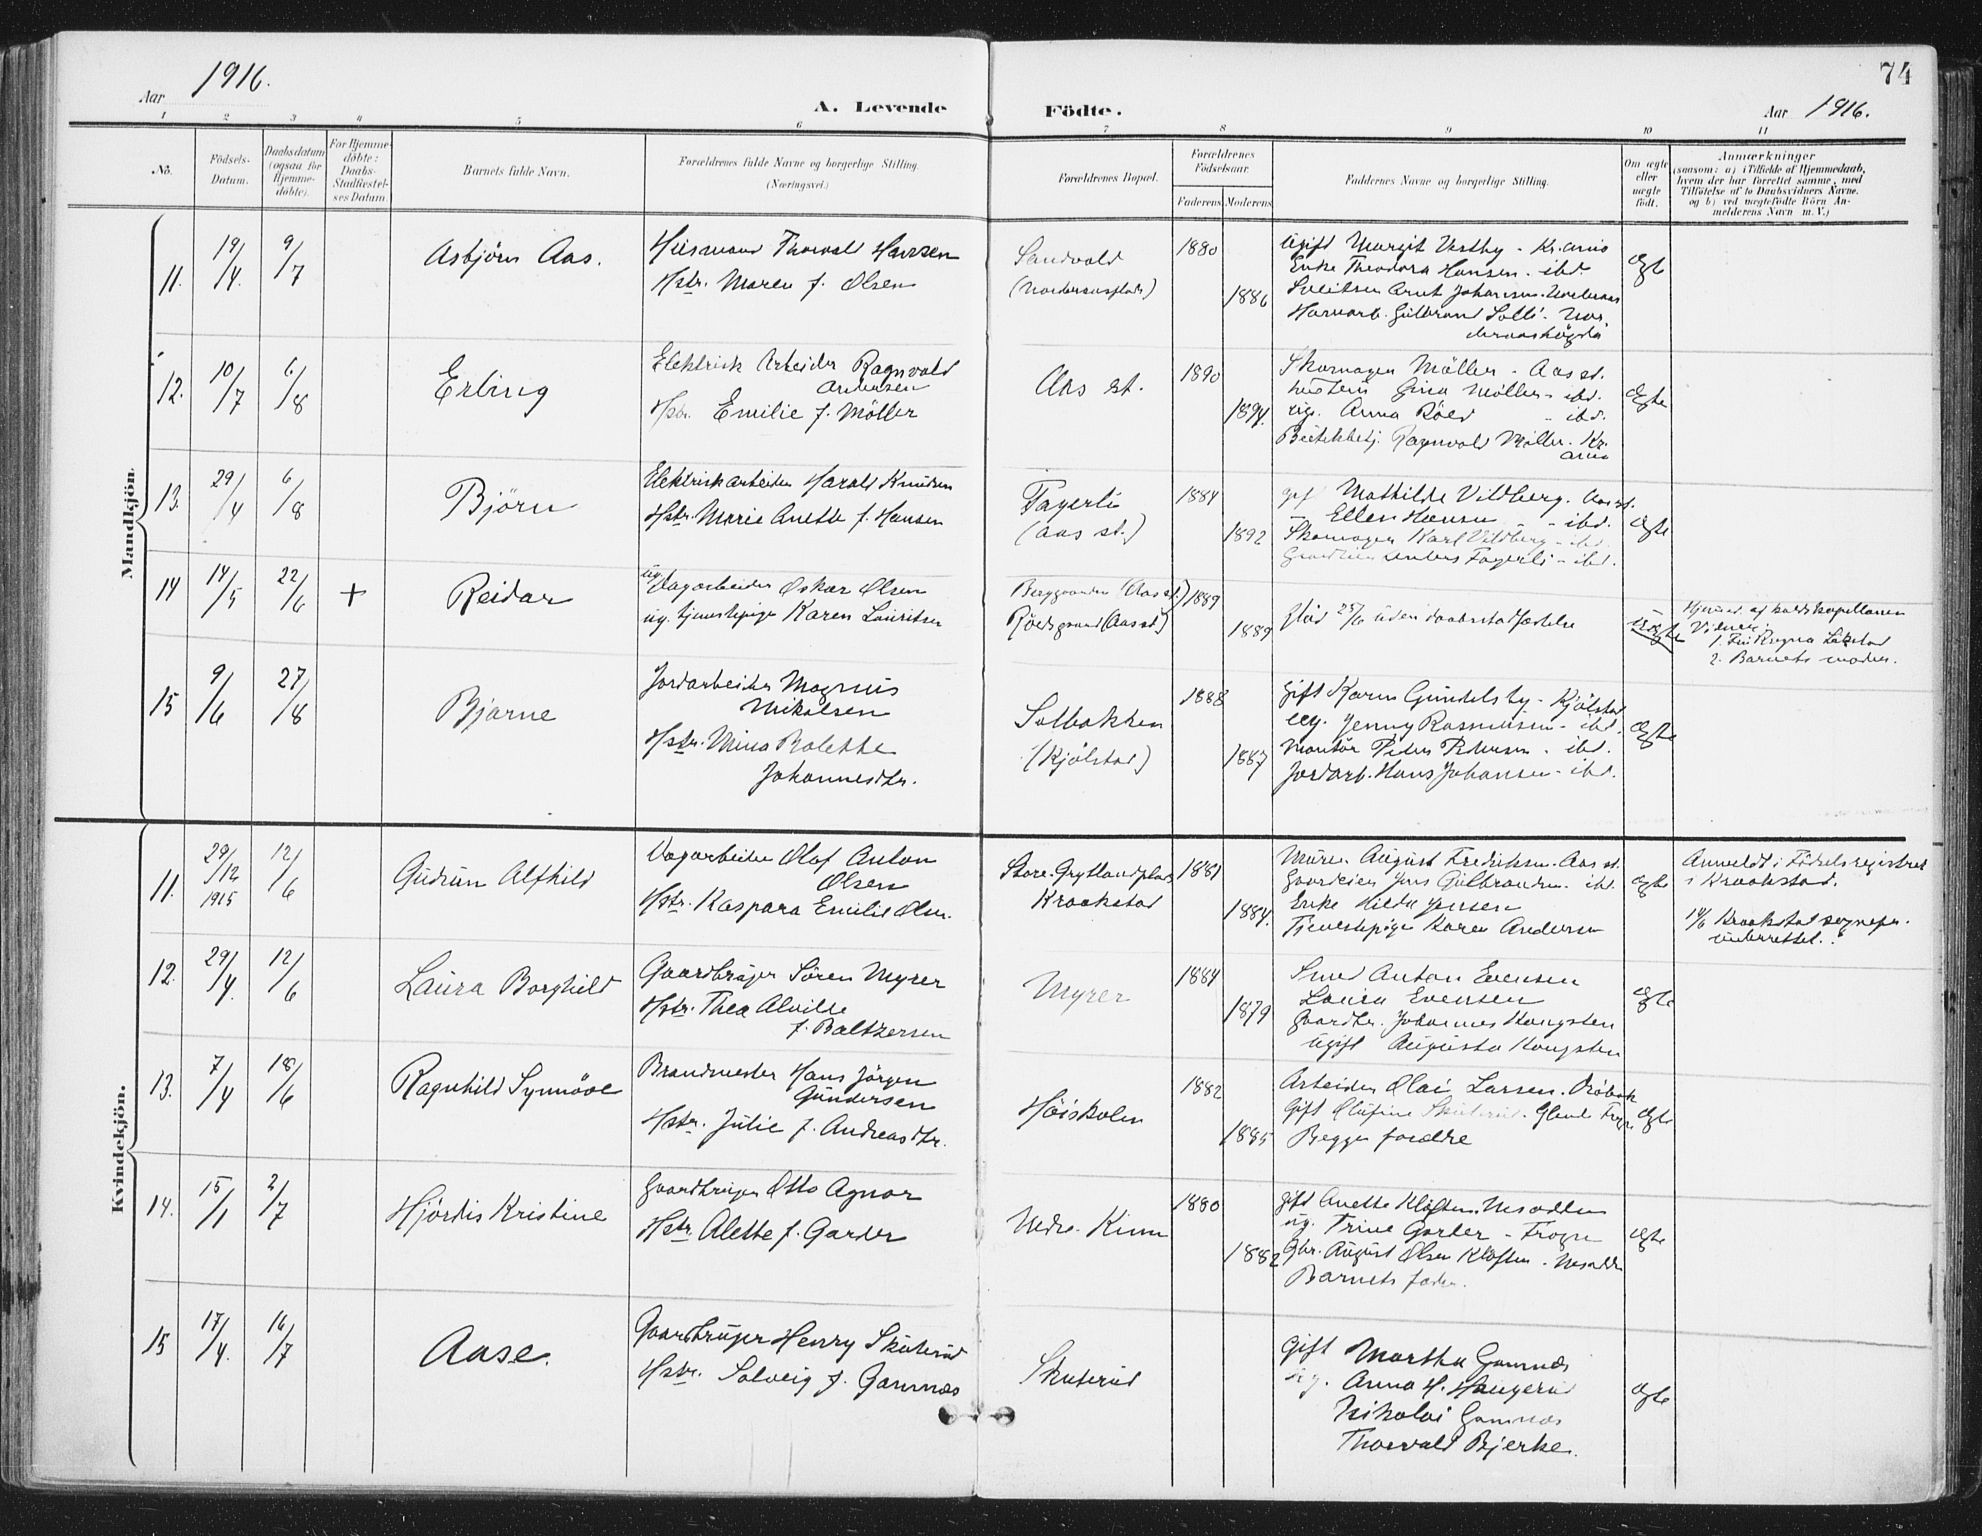 74
Aar 1916.
A. Levende Födte.
Aar 1916.
1 2 3 4 5 6 7 8 9 10 11
No.
Födsels-Datum.
Daabsdatum (ogsaa for Hjemme-döbte).
For Hjemme-döbte: Daabs-Stadfæstel-ses Datum.
Barnets fulde Navn.
Forældrenes fulde Navne og borgerlige Stilling.
(Næringsvei.)
Forældrenes Bopæl.
Forældrenes Födselsaar.
Faderens Moderens
Faddernes Navne og borgerlige Stilling.
Om ægte eller uægte födt.
Anmærkninger
(saasom: a) i Tilfælde af Hjemmedaab, hvem der har forrettet samme, med Tilföielse af to Daabsvidners Navne, og b) ved uægtefödte Börn An-melderens Navn m. V.)
Mandkjön.
11. 19/4. 9/7 Asbjörn Aas.
Thorvald Hansen
Hstr. Maren f. Olsen
Sandvold
1880
1886
Ugift Margit Vestby - Kr.ania
Enke Theodora Hansen - ibd
Arnt Johansen
Gulbrand Solli
ægte
12. 10/7 6/8 Erling
Elektrisk Arbeider Ragnvald
Andersen
Hstr. Emilie f. Möller
Aas st.
1890
1894.
Skomager Möller - Aas st.
Gina Möller - ibd.
ug. Anna Röed - ibd.
Ragnvald Möller. Kr.
ania
ægte
13. 29/4 6/8 Björn
Elektrisk arbeider Harald Knudsen
Hstr. Marie Anette f. Hansen
Fagerli
(Aas st.)
1884
1892
gift Mathilde Vildberg. Aas st.
Ellen Hansen - ibd.
Skomager Karl Vildberg - ibd.
Anders Fagerli - ibd.
ægte
14 14/5 22/6 + Reidar
ug. Dagarbeider Oskar Olsen
ug. tjenestepige Karen Lauritsen
(Aas st.)
Röedsgrund (Aas st.)
1889
1889
död 25/6 uden daabsstadfæstelse
uægte
Hjemmed. af
Vidner:
1. Frk Ragna
2. Barnets moder.
15 9/6 27/8 Bjarne
Jordarbeider Magnus
Nikolsen
Hstr. Mina Bolette
Johannesdtr.
Solbakken
(Kjölstad)
1888
1887
gift Karen Gundelsby - Kjölstad
ug. Jenny Rasmussen - ibd.
Montör Peder Pedersen - ibd.
Jordarb. Hans Johansen - ibd.
ægte
Kvindekjön.
11. 29/12 1915 12/6 Gudrun Alfhild
Dagarbeider Olaf Anton
Olsen
Hstr. Kaspara Emilie Olsen.
Store Gryllandplads
Kraakstad
1881
1884.
Murer August Fredriksen. Aas st.
Gaardeier Jens Gulbrandsen. ibd.
Enke Hilda Jensen
Tjenestepige Karen Andersen
ægte
Anmeldt i Födselsregistret
i Kraakstad.
14/6 Kraakstad sognepr.
underrettet.
12. 29/4. 12/6 Laura Borghild
Gaardbruger Sören Myrer
Hstr. Thea Alvilde
f. Baltzersen
Myrer
1884
1879
Smed Anton Evensen
Laura Evensen
Gaardbr. Johannes Kongsten
ugift Augusta Kongsten
ægte
13. 7/4 18/6 Ragnhild Synnöve
Brandmester Hans Jörgen
Gundersen
Hstr. Julie f. Andreasdtr.
Höiskolen
1882
1885
Arbeider Olai Larsen. Dröbak
Gift Olufine
Begge foreldre
ægte
14. 15/1 2/7 Hjördis Kristine
Gaardbruger Otto Agnar
Hstr. Alette f. Garder
Nedre Kinn
1880
1882
gift Anette Klöften. Nesodden
ug. Trine Garder - Frogn
Gbr. August Olsen Klöften. Nesodden
Barnets fader.
ægte
15 17/4. 16/7 Aase.
Gaardbruger Henry Skuterud
Hstr. Solveig f. Gamnæs
Skuterud
Gift Martha Gamnæs
ug. Anna H. Haugerud
Nikolai Gamnæs
Thorvald Bjerke.
ægte